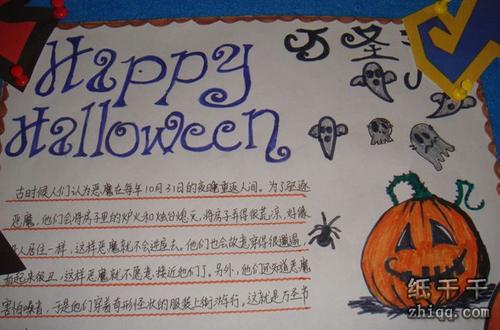 Happy
Halloween
万圣
古时候人们认为恶魔在每年10月31日的夜晚重返人间。为了驱逐
恶魔,他们会将房子里的炉火和烛台熄灭,将房子弄得很荒凉,好像
人居住一样,这样恶魔就不会进屋去。他们也会故意穿得很邋遢,
起来很丑,这样恶魔就不愿意接近他们了。另外,他们还知道恶魔
害怕噪音,于是他们穿着奇形怪状的服装上街游行。这就是万圣节
纸千千
zhiqq.com